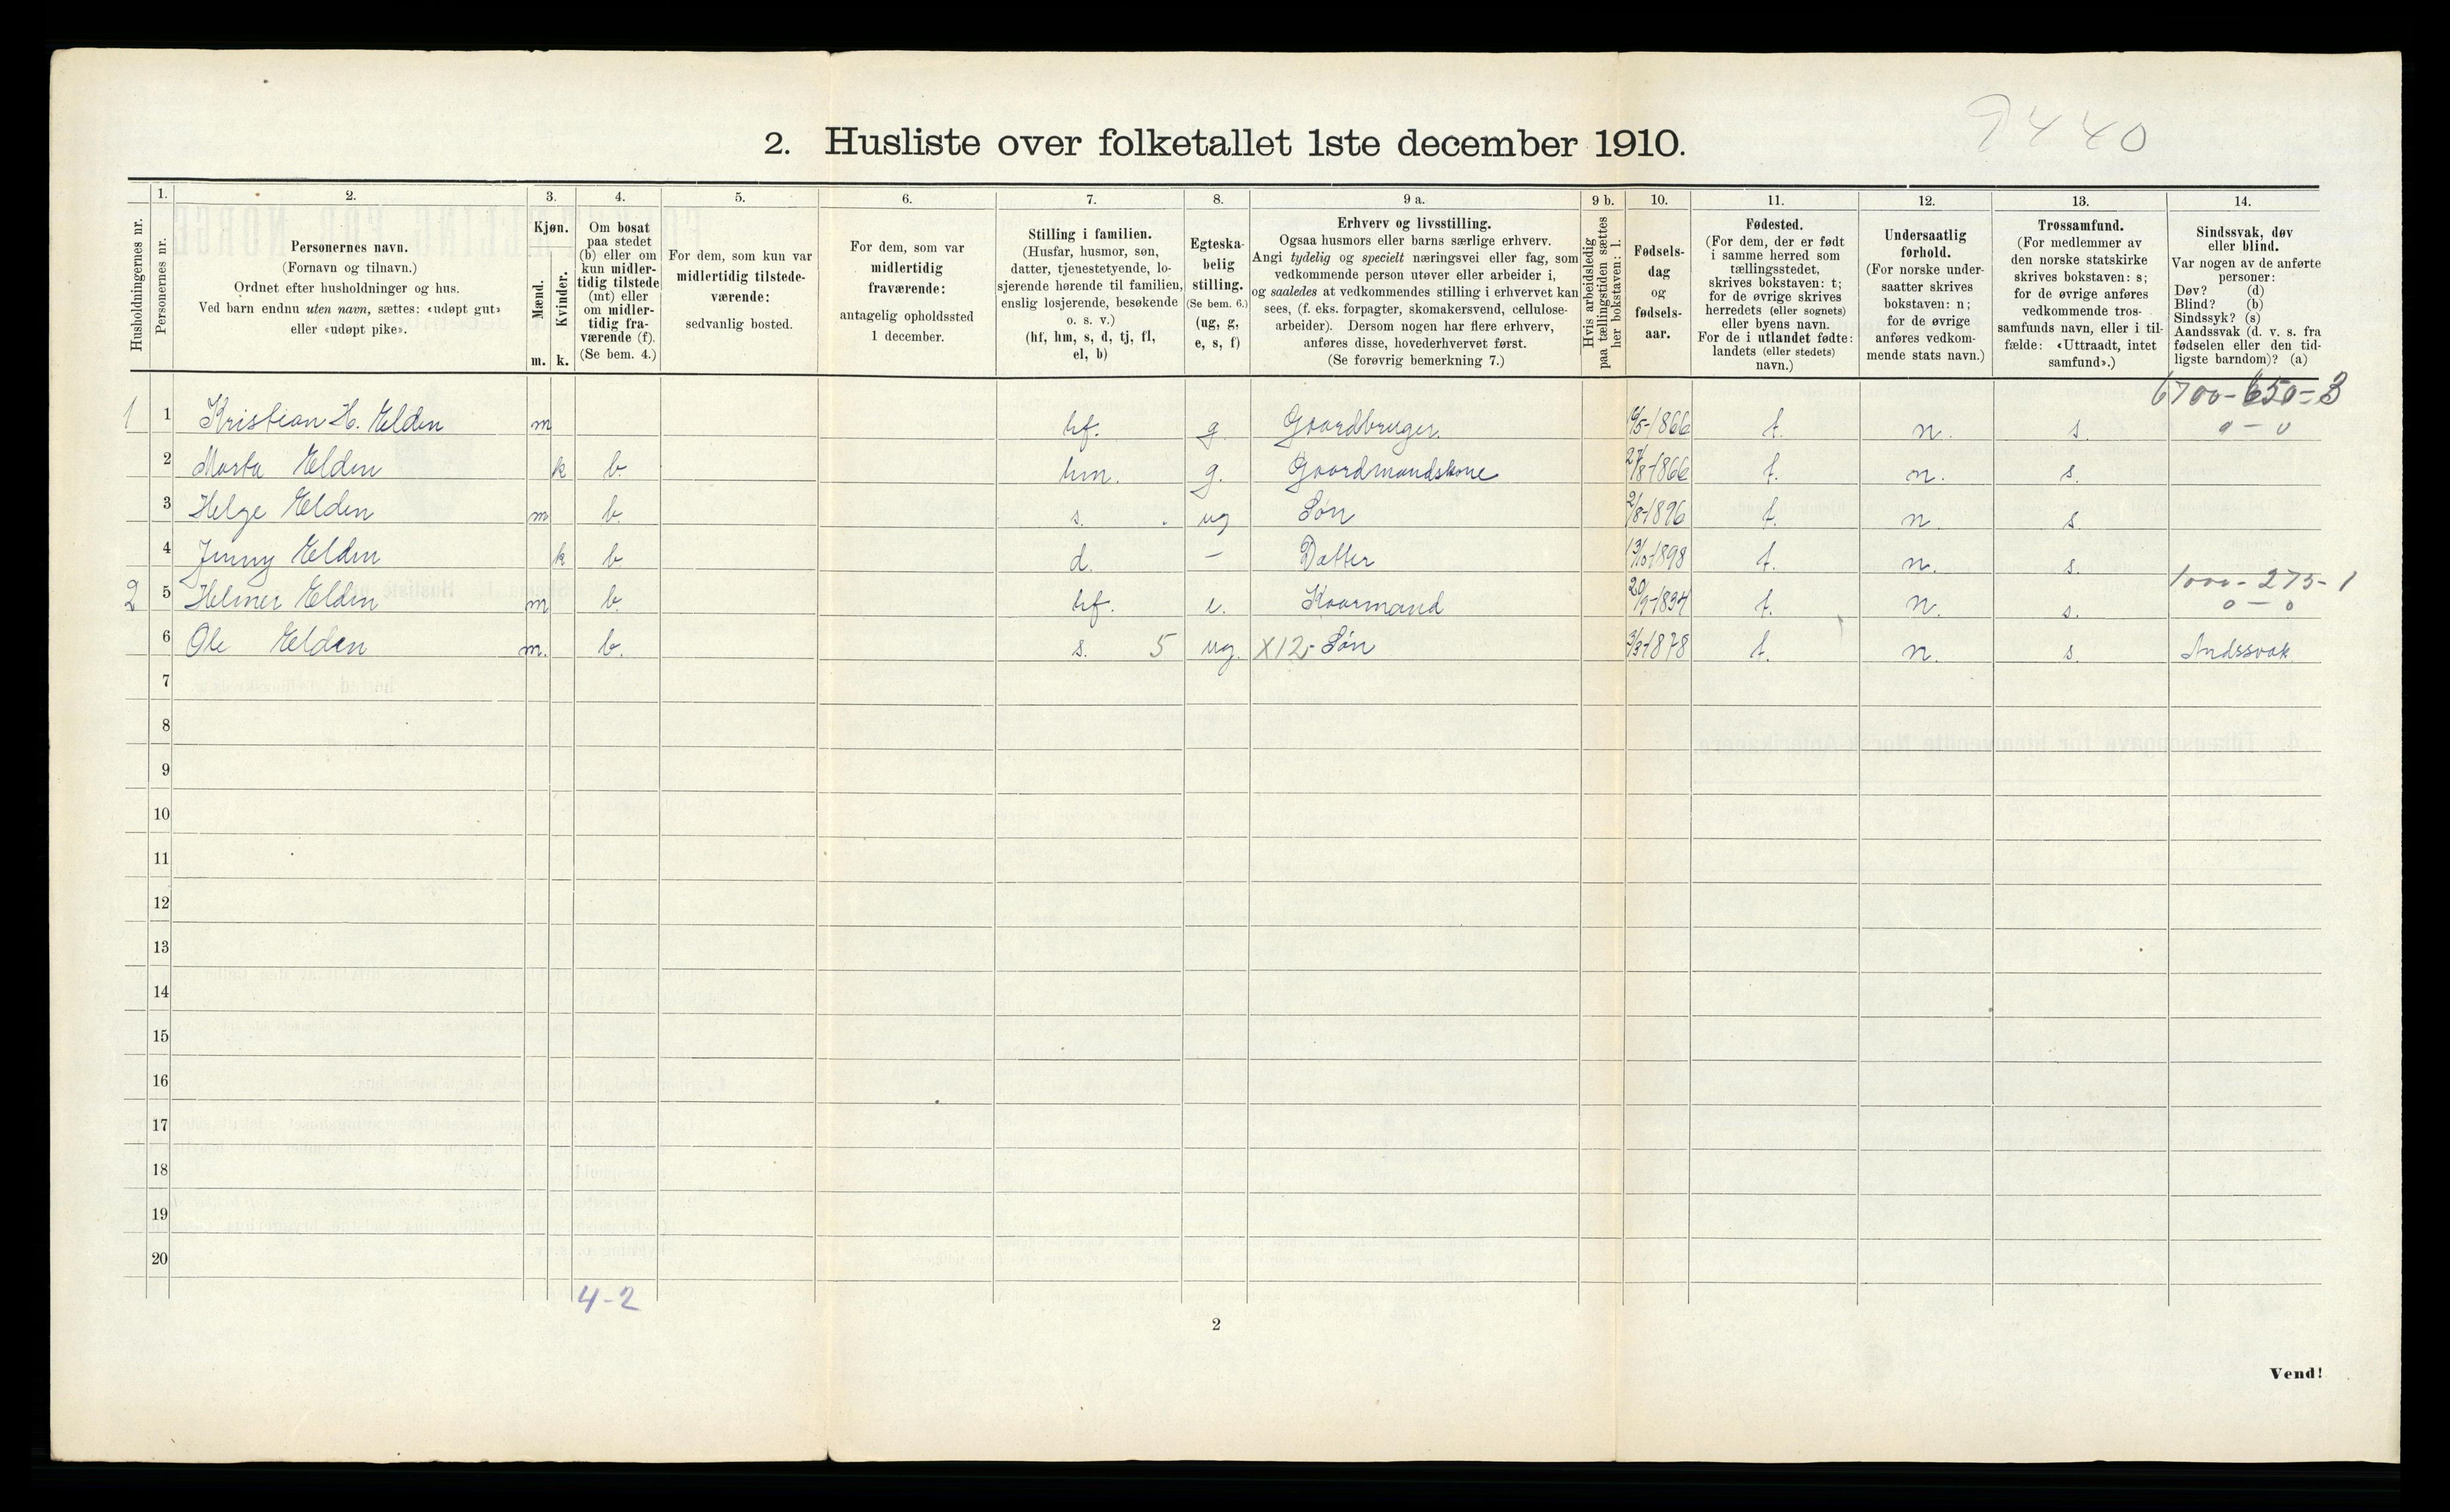 7440
2. Husliste over folketallet 1ste december 1910.
Husholdningernes nr.
1.
Personernes nr.
2.
Personernes navn.
(Fornavn og tilnavn.)
Ordnet efter husholdninger og hus.
Ved barn endnu uten navn, sættes: «udøpt gut»
eller «udøpt pike».
3.
Kjøn.
Mænd.
Kvinder.
m. k.
4.
Om bosat
paa stedet
(b) eller om
kun midler-
tidig tilstede
(mt) eller
om midler-
tidig fra-
værende (f).
(Se bem. 4.)
5.
For dem, som kun var
midlertidig tilstede-
værende:
sedvanlig bosted.
6.
For dem, som var
midlertidig
fraværende:
antagelig opholdssted
1 december.
7.
Stilling i familien.
(Husfar, husmor, søn,
datter, tjenestetyende, lo-
sjerende hørende til familien,
enslig losjerende, besøkende
o. s. v.)
(hf, hm, s, d, tj, fl,
el, b)
8.
Egteska-
belig
stilling.
(Se bem. 6.)
(ug, g,
e, s, f)
9 a.
Erhverv og livsstilling.
Ogsaa husmors eller barns særlige erhverv.
Angi tydelig og specielt næringsvei eller fag, som
vedkommende person utøver eller arbeider i,
og saaledes at vedkommendes stilling i erhvervet kan
sees, (f. eks. forpagter, skomakersvend, cellulose-
arbeider). Dersom nogen har flere erhverv,
anføres disse, hovederhvervet først.
(Se forøvrig bemerkning 7.)
9 b.
Hvis arbeidsledig
paa tællingstiden sættes
her bokstaven: l.
10.
Fødsels-
dag
og
fødsels-
aar.
11.
Fødested.
(For dem, der er født
i samme herred som
tællingsstedet,
skrives bokstaven: t;
for de øvrige skrives
herredets (eller sognets)
eller byens navn.
For de i utlandet fødte:
landets (eller stedets)
navn.)
12.
Undersaatlig
forhold.
(For norske under-
saatter skrives
bokstaven: n;
for de øvrige
anføres vedkom-
mende stats navn.)
13.
Trossamfund.
(For medlemmer av
den norske statskirke
skrives bokstaven: s;
for de øvrige anføres
vedkommende tros-
samfunds navn, eller i til-
fælde: «Uttraadt, intet
samfund».)
14.
Sindssvak, døv
eller blind.
Var nogen av de anførte
personer:
Døv? (d)
Blind? (b)
Sindssyk? (s)
Aandssvak (d. v. s. fra
fødselen eller den tid-
ligste barndom)? (a)
6700-650=3
1 1 Kristian H. Elden m hf. g. Gaardbruger. 1866 t. n. s. 0 - 0
2 Marta Elden k b. hm. g. Gaardmandskone 27/8-1866 t. n. s.
3 Helge Elden m b. s. ug Søn 2/8-1896 t. n. s.
4 Jenny Elden k b d. - Datter 13/10-1898 t. n. s.
1000-275-1
2 5 Helmer Elden m b. hf. e. Kaarmand t. n. s. 0 - 0
6 Ole Elden m. b. s. 5 ug. X12,- Søn 3/3-1878 t. n. s. Andssvak
7
8
9
10
11
12
13
14
15
16
17
18
19
20
4-2
2
Vend!